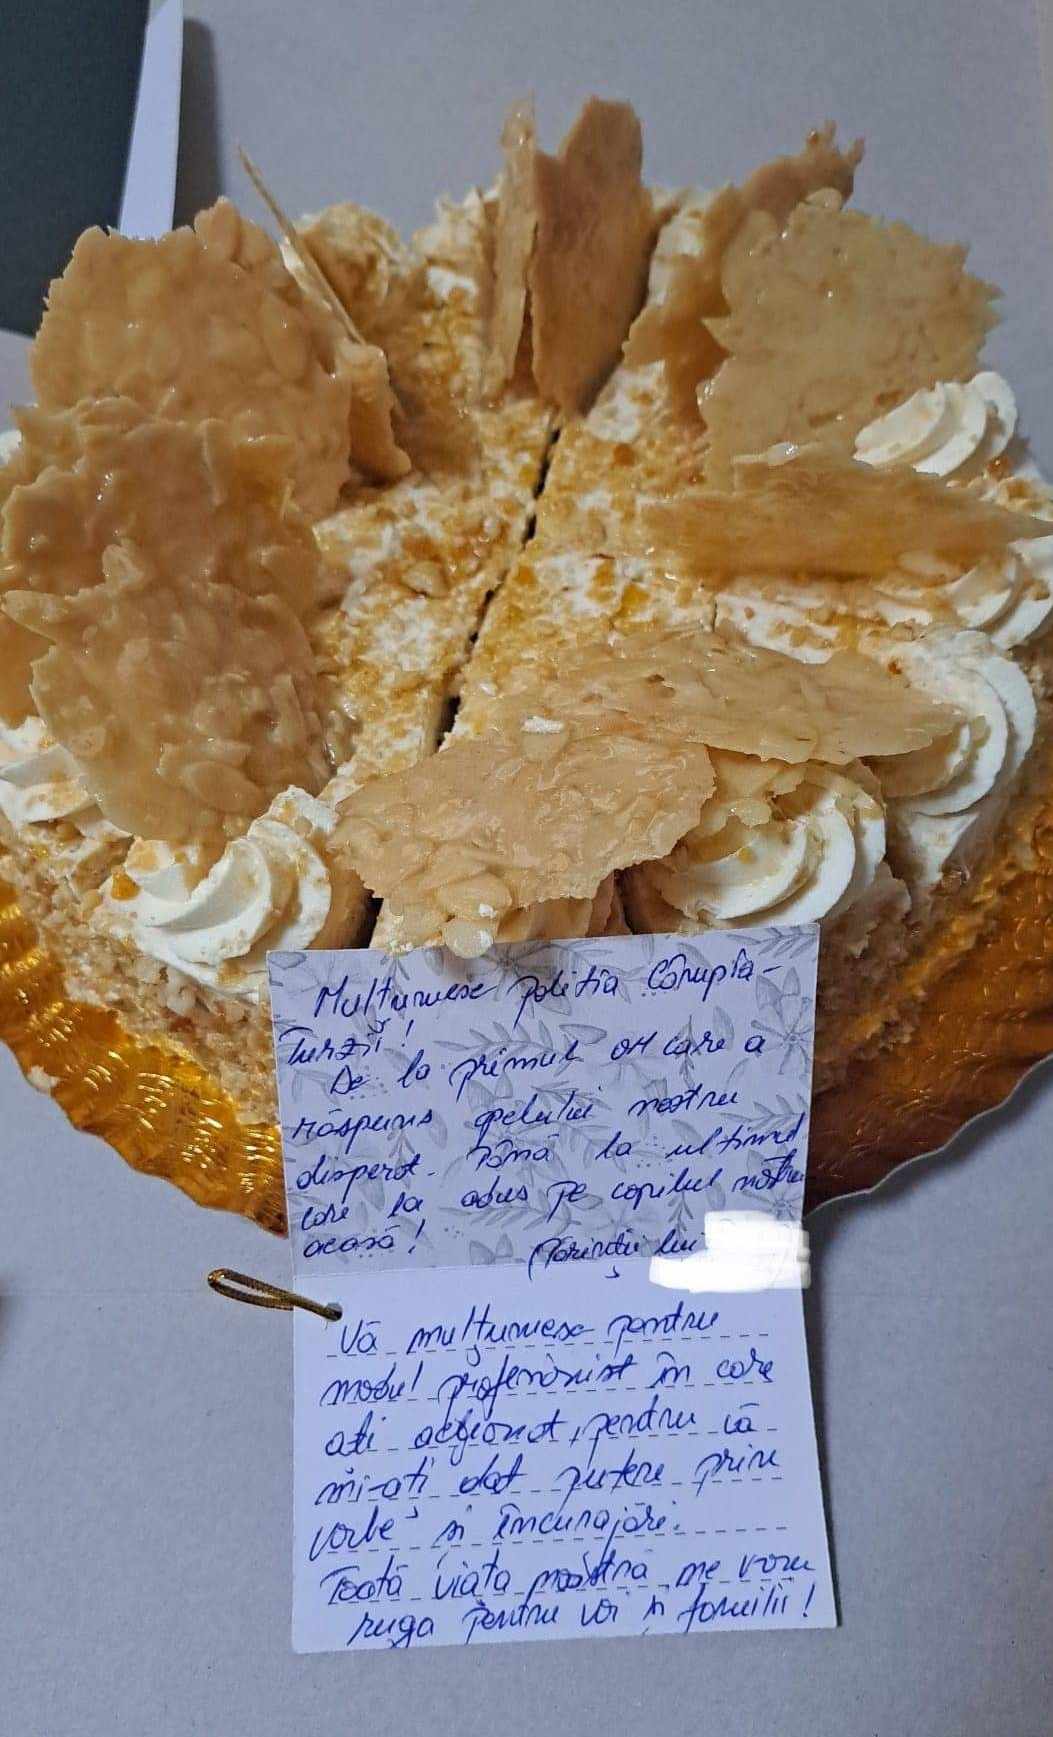 Mulțumesc poliția Câmpia-
Turzii!
De la primul om care a
răspuns apelului nostru
disperat până la ultimul
care l-a adus pe copilul nostru
acasă!
Părinții lui
Vă mulțumesc pentru
modul profesionist în care
ați acționat, pentru că
mi-ați dat putere prin
vorbe și încurajări.
Toată viața noastră ne vom
ruga pentru voi și familii!